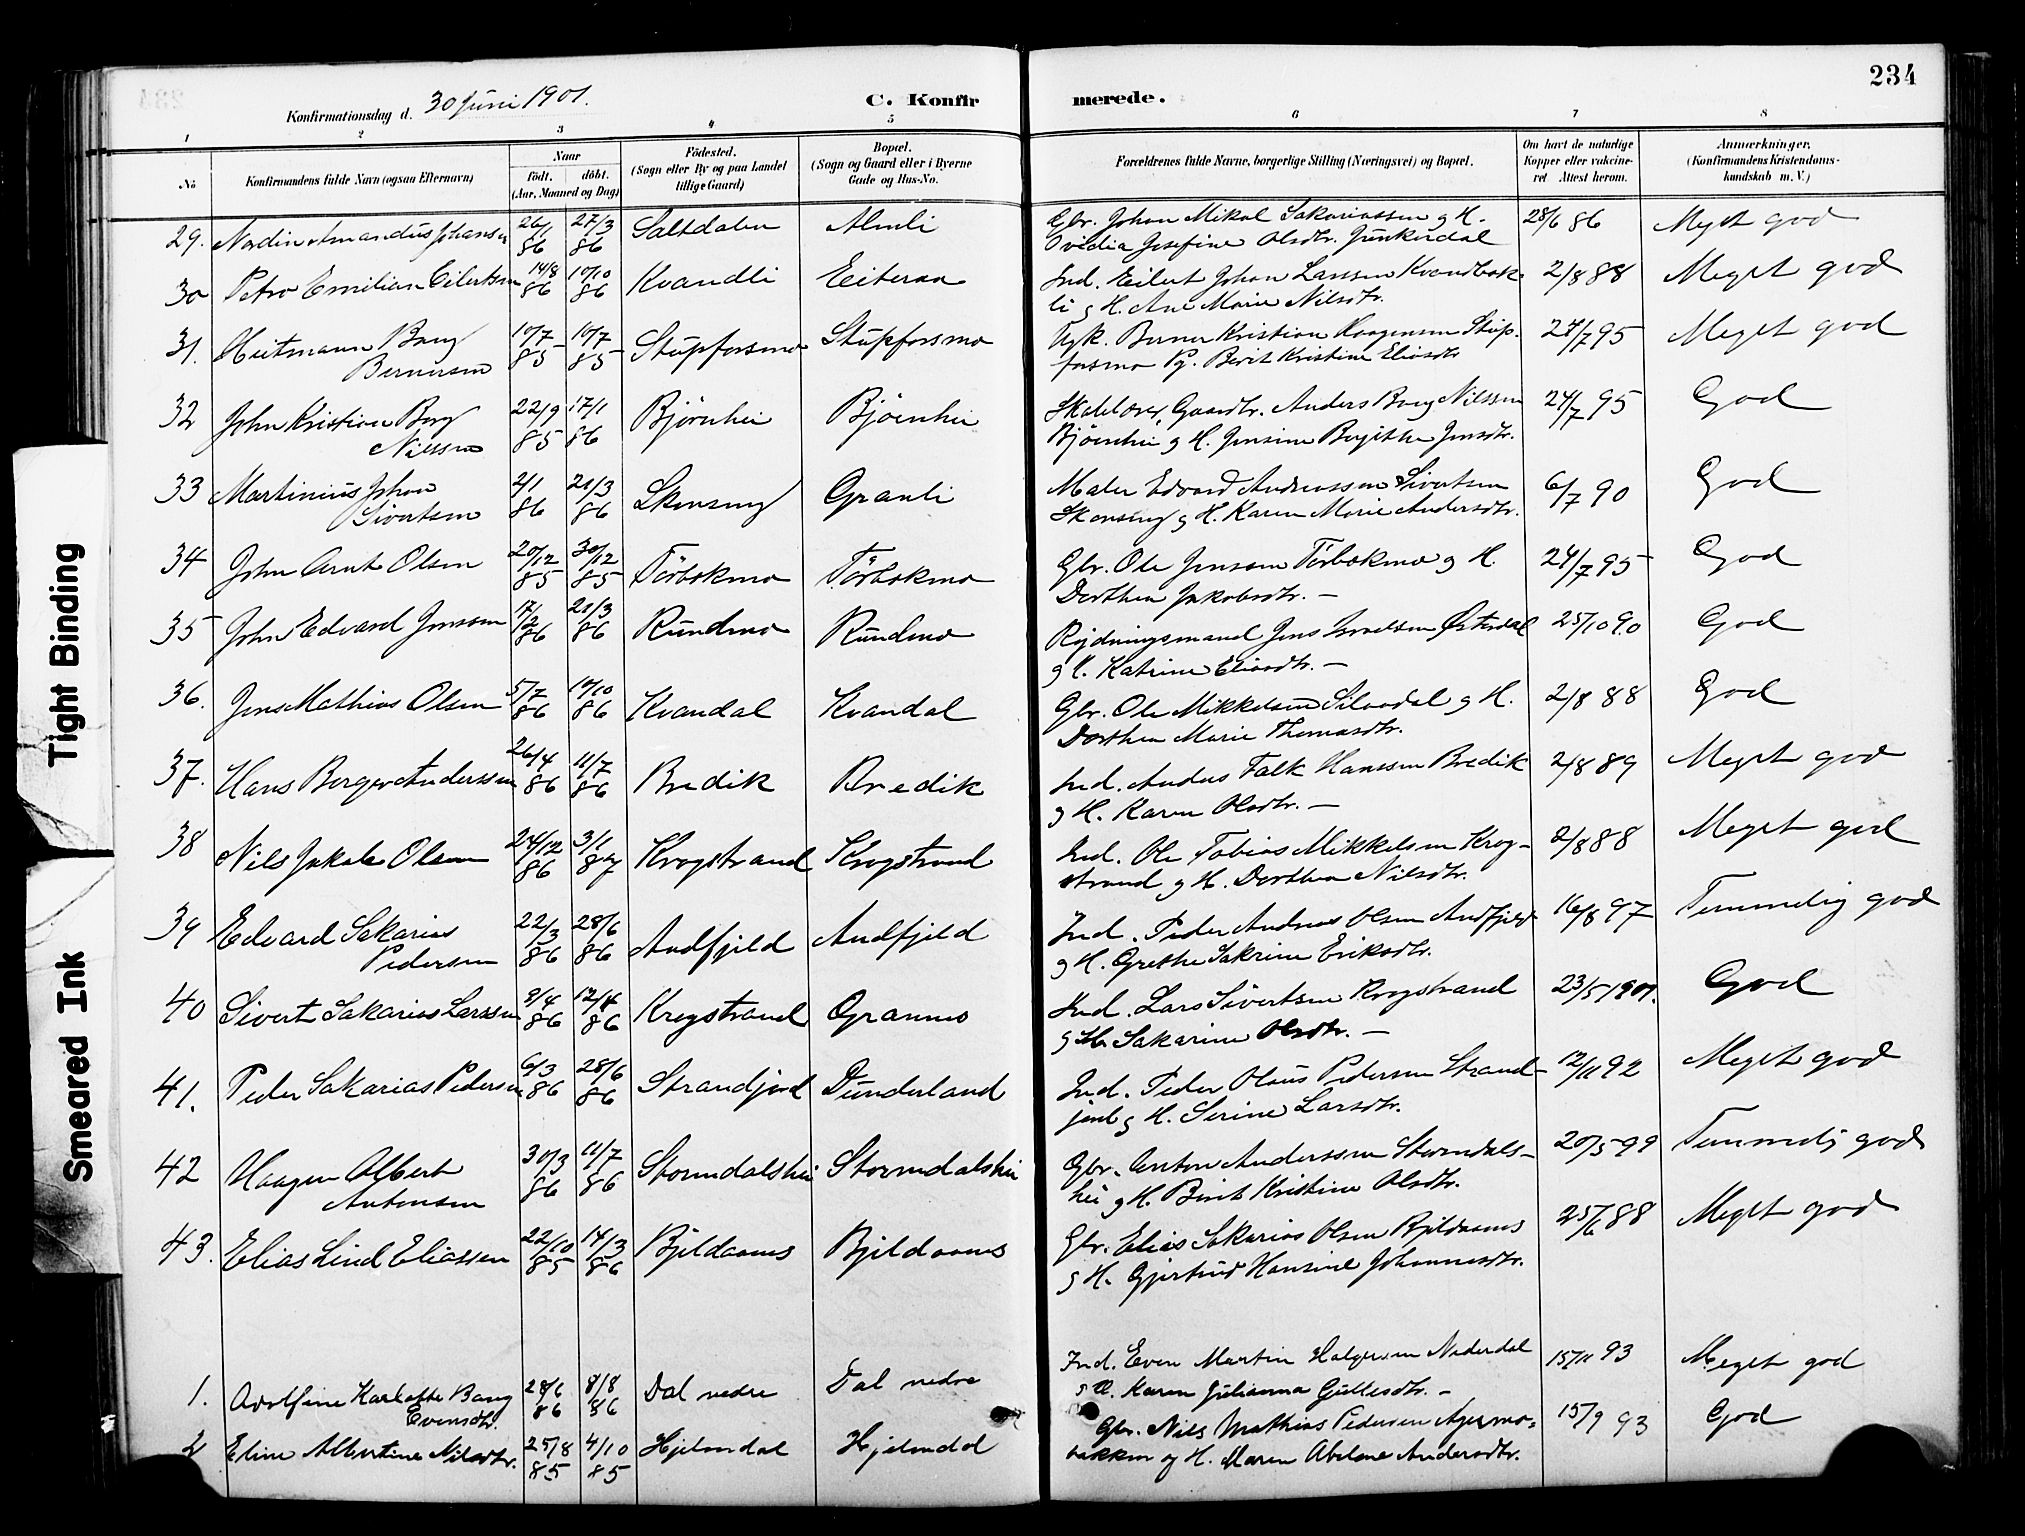 234
Konfirmationsdag d. 30 Juni 1901.
C. Konfirmerede.
1 2 3 4 5 6 7 8
No
Konfirmandens fulde Navn (ogsaa Efternavn)
Naar
født. døbt.
(Aar, Maaned og Dag)
Födested.
(Sogn eller By og paa Landet
tillige Gaard)
Bopæl.
(Sogn og Gaard eller i Byerne
Gade og Hus-No.
Forældrenes fulde Navne, borgerlige Stilling (Næringsvei) og Bopæl.
Om havt de naturlige
Kopper eller vakcine-
ret Attest herom.
Anmærkninger.
(Konfirmandens Kristendoms-
kundskab m. V.)
29. Nordin Amandus Johansen 26/1 86 27/3 86 Saltdalen Almli Gbr. Johan Mikal Sakariassen g H. 28/6 86 Meget god
Ovidia Josefine Olsdtr. Junkerdal
30 Petro Emilian Eilertsen 14/8 86 10/10 86 Kvandli Eiteraa Ind. Eilert Johan Larssen Kvandbak- 2/8 88 Meget god
li g H. Ane Marie Nilsdtr.
31. Heitmann Bang 10/7 85 10/7 85 Stupforsmo Stupforsmo Ugk. Berner Kristian Haagensen Stup- 24/7 95 Meget god
Bernersen forsmo Pg. Berit Kristine Eliasdtr
32 John Kristian Bang 22/9 85 17/1 86 Bjørnhei Bjørnhei Skoleløvr, Gaardbr. Anders Bang Nilssen 24/7 95 God
Nilssen Bjørnhei g H. Jensine Birgitte Jensdtr.
33 Martinius Johan 2/1 86 21/3 86 Skonseng Granli Maler Edvard Andreassen Sivertsen 6/7 90 God
Sivertsen Skonseng g H. Karen Marie Andersdtr.
34 John Arnt Olsen 20/12 85 30/12 85 Tørbekmo Tørbekmo Gbr. Ole Jensen Tørbekmo g H. 24/7 95 God
Dorthea Jakobsdtr. —
35 John Edvard Jenssen 17/2 86 21/3 86 Rundmo Rundmo Rydningsmand Jens Israelsen Østerdal 25/10 90 God
g H. Katrine Eliasdtr. —
36. Jens Mathias Olsen 5/7 86 10/10 86 Kvandal Kvandal Gbr. Ole Mikkelsen Silaadal g H. 2/8 88 God
Dorthea Marie Thomasdtr.
37. Hans Berger Anderssen 26/4 86 11/7 86 Bredik Bredik Ind. Anders Falk Hanssen Bredik 2/8 89 Meget god
g H. Karen Olsdtr. —
38 Nils Jakob Olsen 24/12 86 3/1 87 Krogstrand Krogstrand Ind. Ole Tobias Mikkelsen Krog- 2/8 88 Meget god
strand g H. Dorthea Nilsdtr.
39 Edvard Sakarias 22/3 86 28/6 86 Andfjeld Andfjeld Ind. Peder Andreas Olsen Andfjeld 16/8 97 Temmelig god
Pedersen g H. Grethe Sakrine Eriksdtr.
40 Sivert Sakarias Larssen 9/4 86 12/4 86 Krogstrand Grannes Ind. Lars Sivertsen Krogstrand 23/5 1901. God
g H. Sakarine Olsdtr. —
41. Peder Sakarias Pedersen 6/3 86 28/6 86 Strandjord Dunderland Ind. Peder Olaus Pedersen Strand- 12/11 92 Meget god
jord g H. Serine Larsdtr.
42 Haagen Albert 30/3 86 11/7 86 Stormdalshei Stormdalshei Gbr. Anton Anderssen Stormdals- 20/5 99 Temmelig god
Antonsen hei g H. Berit Kristine Olsdtr.
43. Elias Lind Eliassen 22/10 85 14/3 86 Bjeldaanes Bjeldaanes Gbr. Elias Sakarias Olsen Bjeldaanes 25/6 88 Meget god
g H. Gjertrud Hansine Johannesdtr.
1. Adolfine Karlotte Bang 28/6 86 8/8 86 Dal nedre Dal nedre Ind. Even Martin Holgersen Nederdal 15/11 93 Meget god
Evensdtr. g H. Karen Julianna Gullesdtr. —
2 Eline Albertine Nilsdtr. 25/8 85 4/10 85 Hjelmdal Hjelmdal Gbr. Nils Mathias Pedersen Agermo- 15/9 93 God
bakken og H. Maren Abelone Andersdtr.
Tight Binding
Smeared Ink